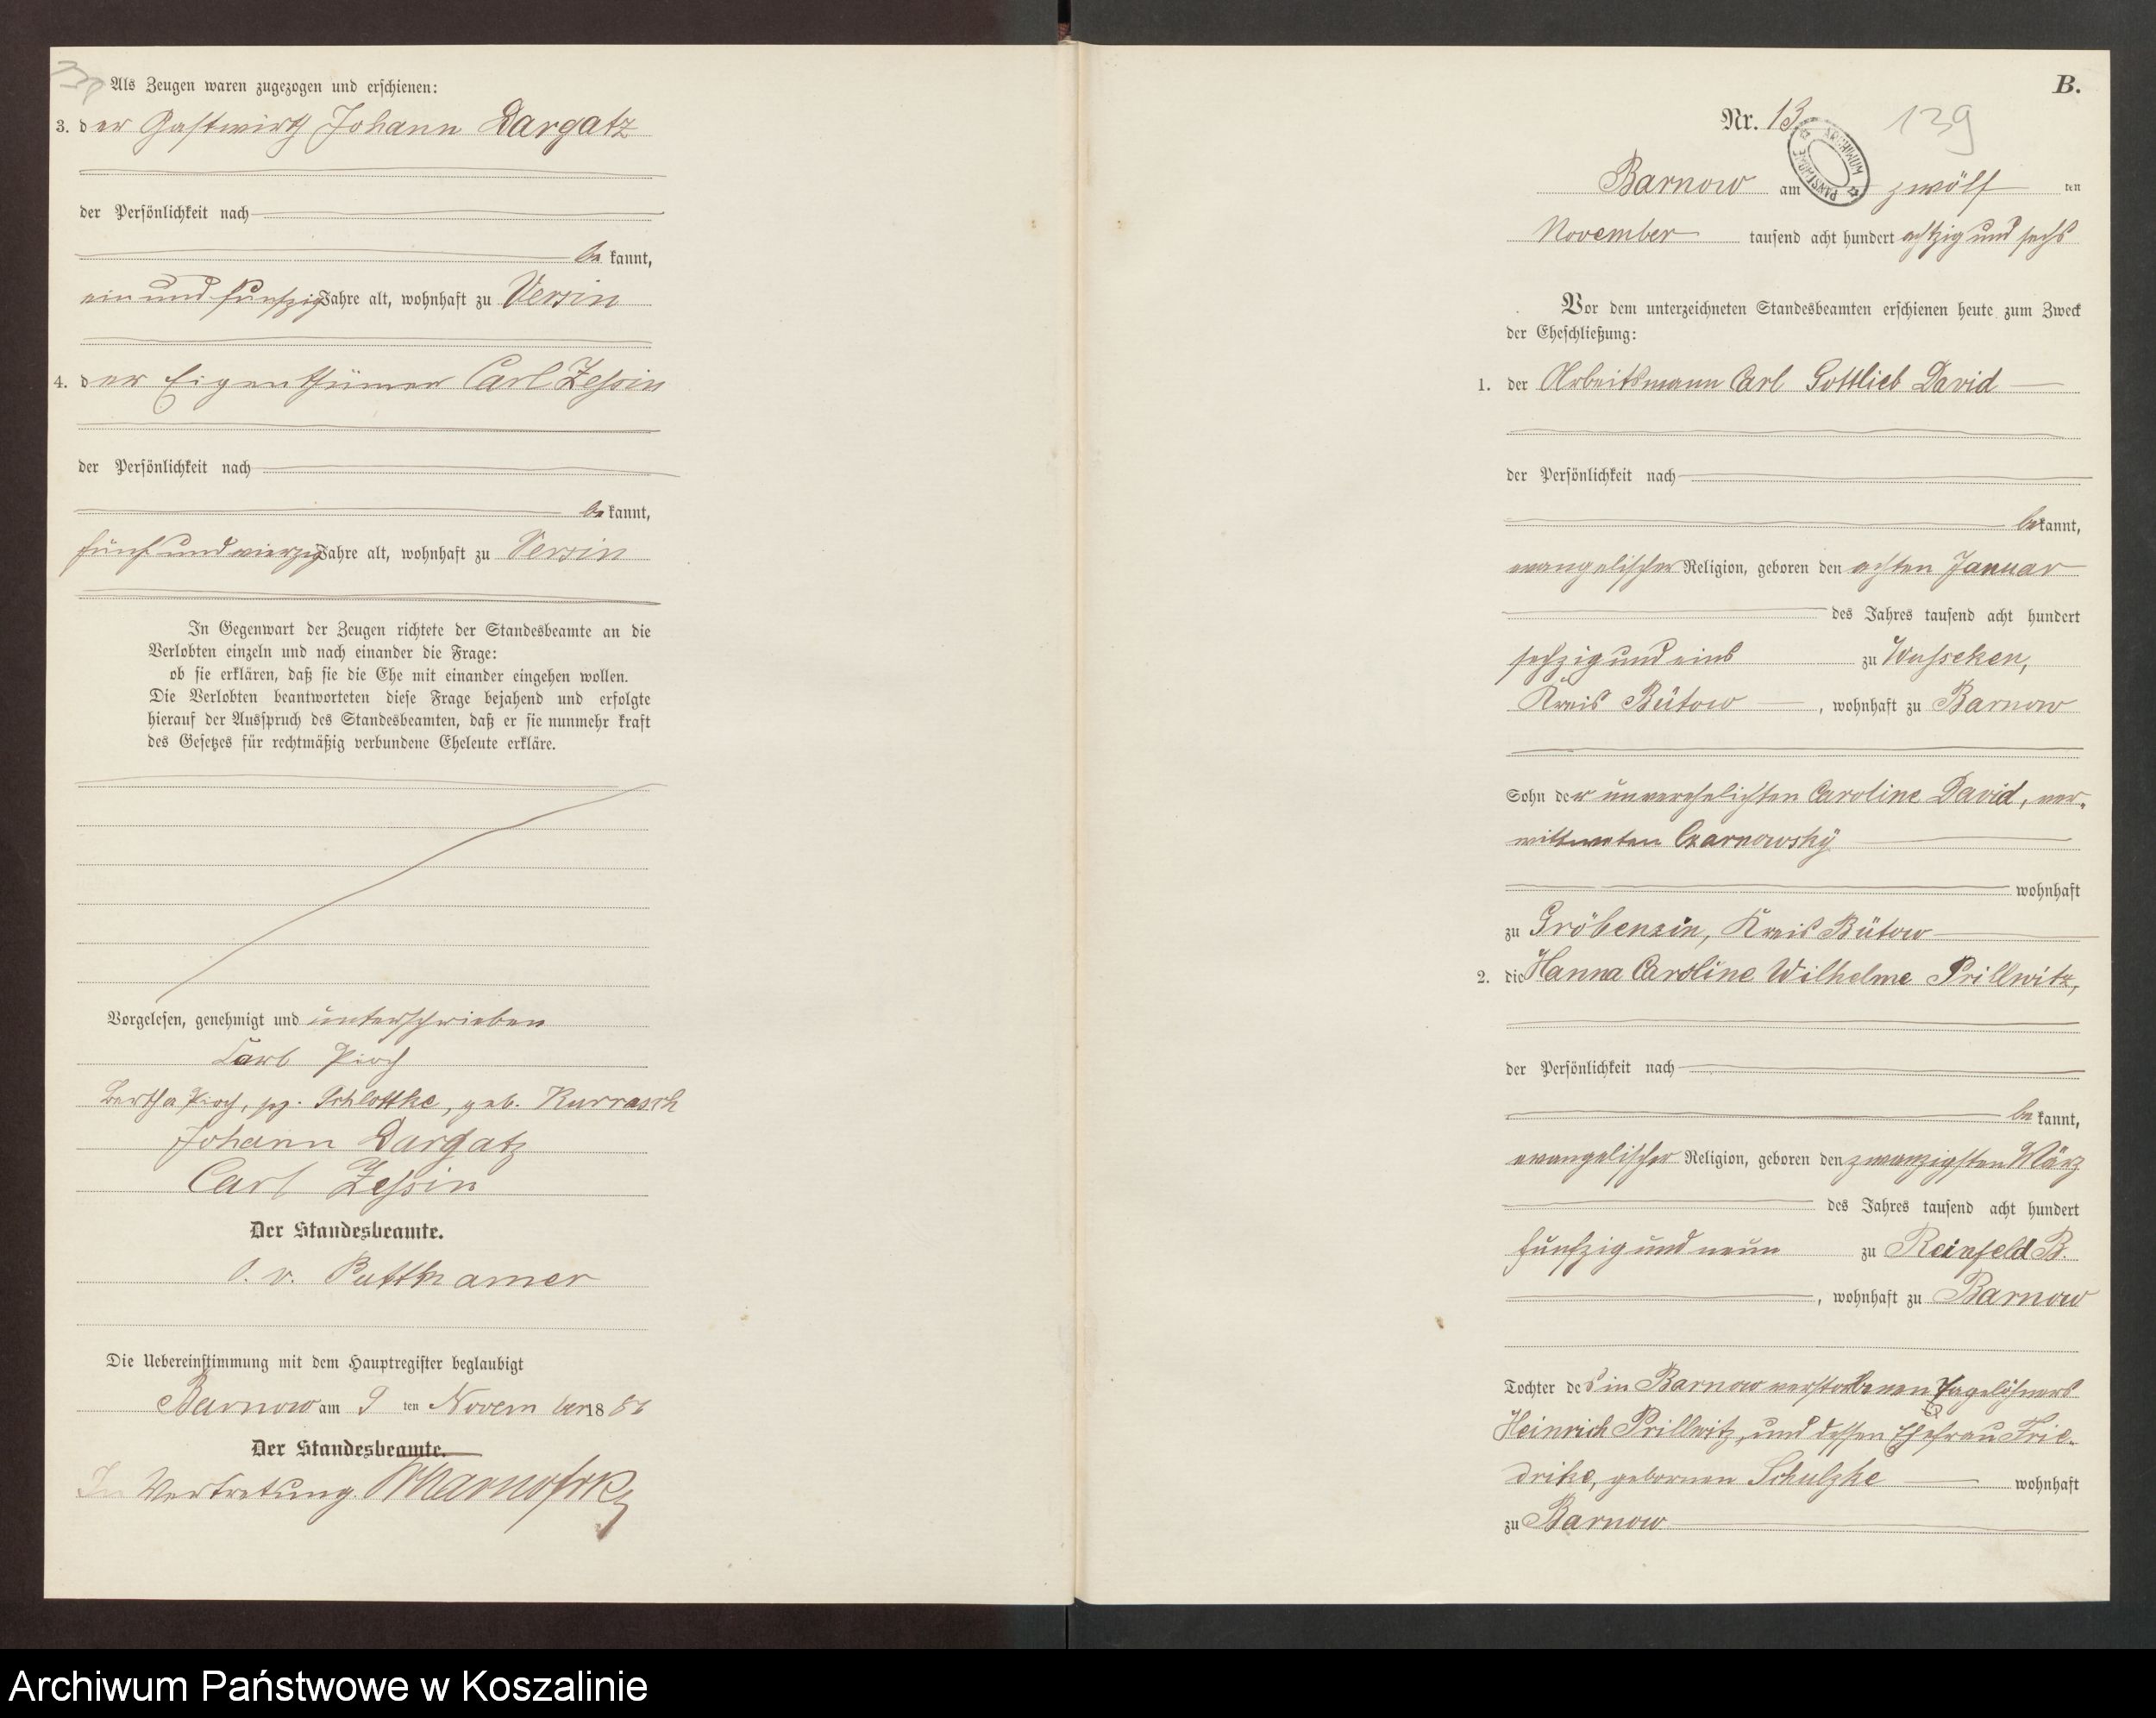 Als Zeugen waren zugezogen und erschienen:
3. der Gastwirth Johann Dargatz
der Persönlichkeit nach
bekannt,
ein und fünfzig Jahre alt, wohnhaft zu Versin
4. der Eigenthümer Carl Zessin
der Persönlichkeit nach
bekannt,
fünf und vierzig Jahre alt, wohnhaft zu Versin
In Gegenwart der Zeugen richtete der Standesbeamte an die
Verlobten einzeln und nach einander die Frage:
ob sie erklären, daß sie die Ehe mit einander eingehen wollen.
Die Verlobten beantworteten diese Frage bejahend und erfolgte
hierauf der Ausspruch des Standesbeamten, daß er sie nunmehr kraft
des Gesetzes für rechtmäßig verbundene Eheleute erkläre.
Vorgelesen, genehmigt und unterschrieben
Carl Pioch
Bertha Pioch, Schlottke, geb. Kurrasch
Johann Dargatz
Carl Zessin
Der Standesbeamte.
v. Puttkamer
Die Uebereinstimmung mit dem Hauptregister beglaubigt
Barnow am 9 ten November 1886
Der Standesbeamte.
In Vertretung.
B.
Nr. 13
139
Barnow am zwölf ten
November tausend acht hundert achtzig und sechs
Vor dem unterzeichneten Standesbeamten erschienen heute zum Zweck
der Eheschließung:
1. der Arbeitsmann Carl Gottlieb David
der Persönlichkeit nach
bekannt,
evangelischer Religion, geboren den achten Januar
des Jahres tausend acht hundert
sechzig und eins zu Wusseken,
Kreis Bütow, wohnhaft zu Barnow
Sohn der unverehelichten Caroline David, ver-
wittweten Czarnowsky
wohnhaft
zu Gröbenzin, Kreis Bütow
2. die Hanna Caroline Wilhelme Prillwitz,
der Persönlichkeit nach
bekannt,
evangelischer Religion, geboren den zwanzigsten März
des Jahres tausend acht hundert
fünfzig und neun zu Reinfeld B.
, wohnhaft zu Barnow
Tochter des in Barnow verstorbenen Tagelöhners
Heinrich Prillwitz, und dessen Ehefrau Frie-
drike, gebornen Schulzke wohnhaft
zu Barnow
Archiwum Państwowe w Koszalinie